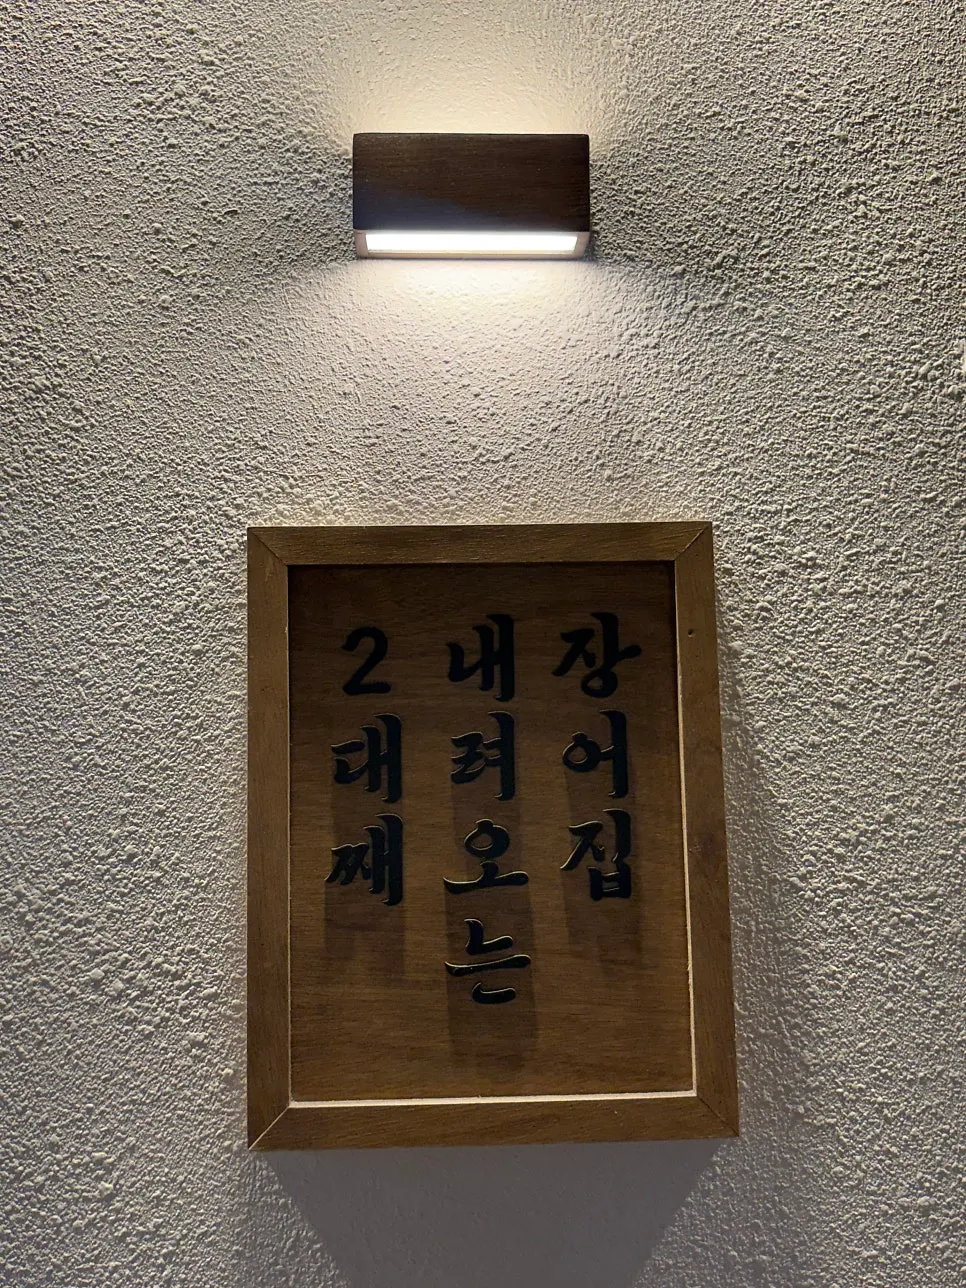 2대째
내려오는
장어집